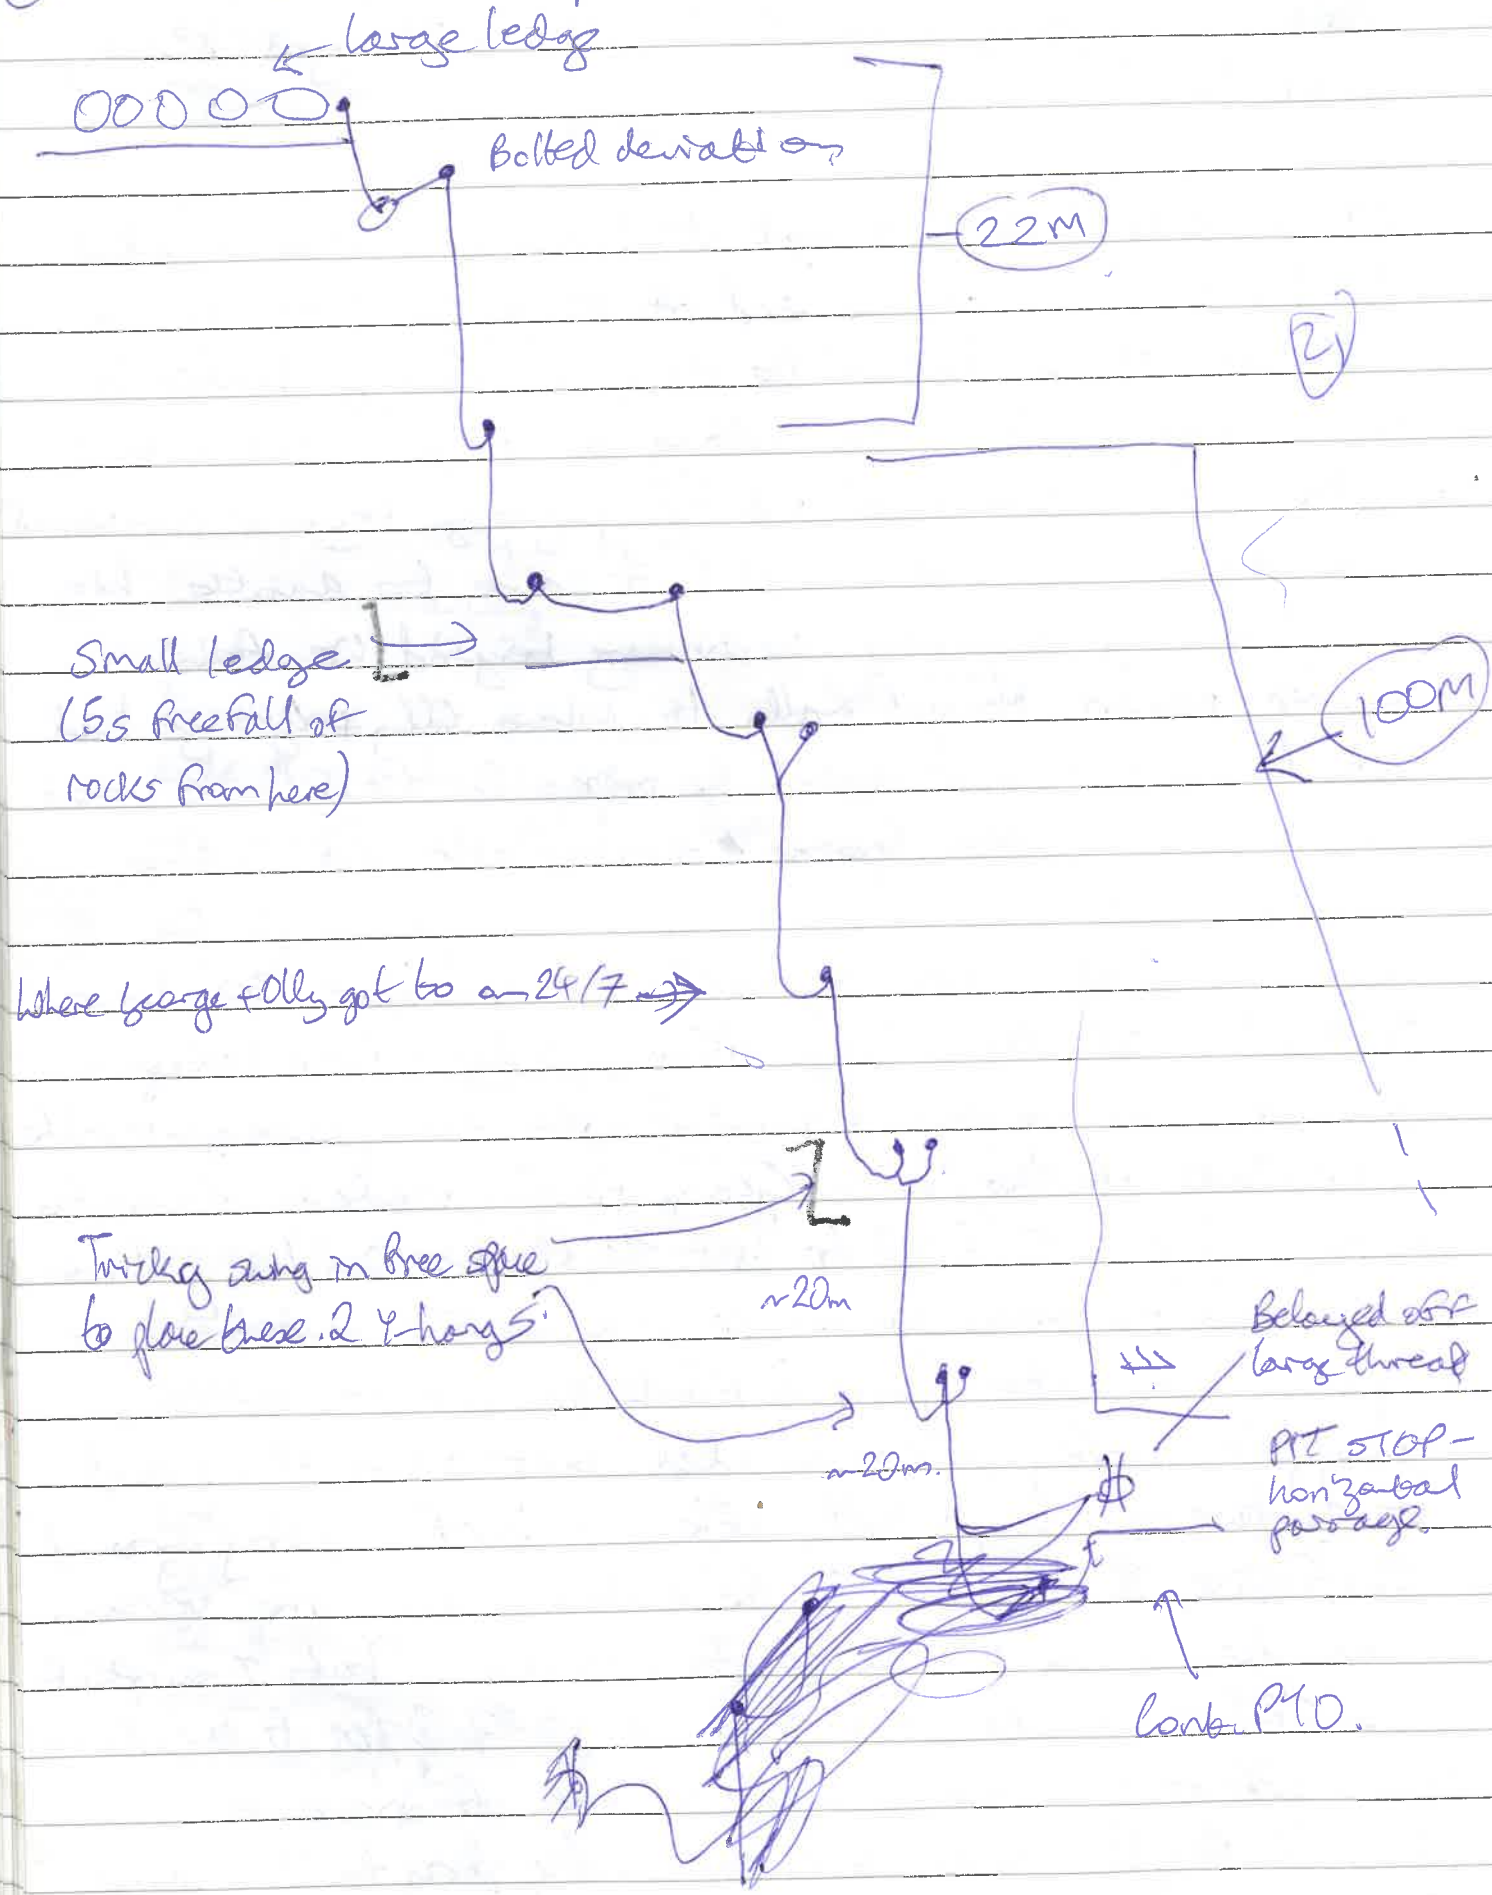 large ledge
Bolted deviation
22m
2)
Small ledge
(5s freefall of
rocks from here)
100m
Where George + Olly got to on 24/7
Tricky swing in free space
to place these 2 Y-hangs.
~20m
Belayed off
large thread
~20m.
PIT STOP -
horizontal
passage.
Cont. PTO.